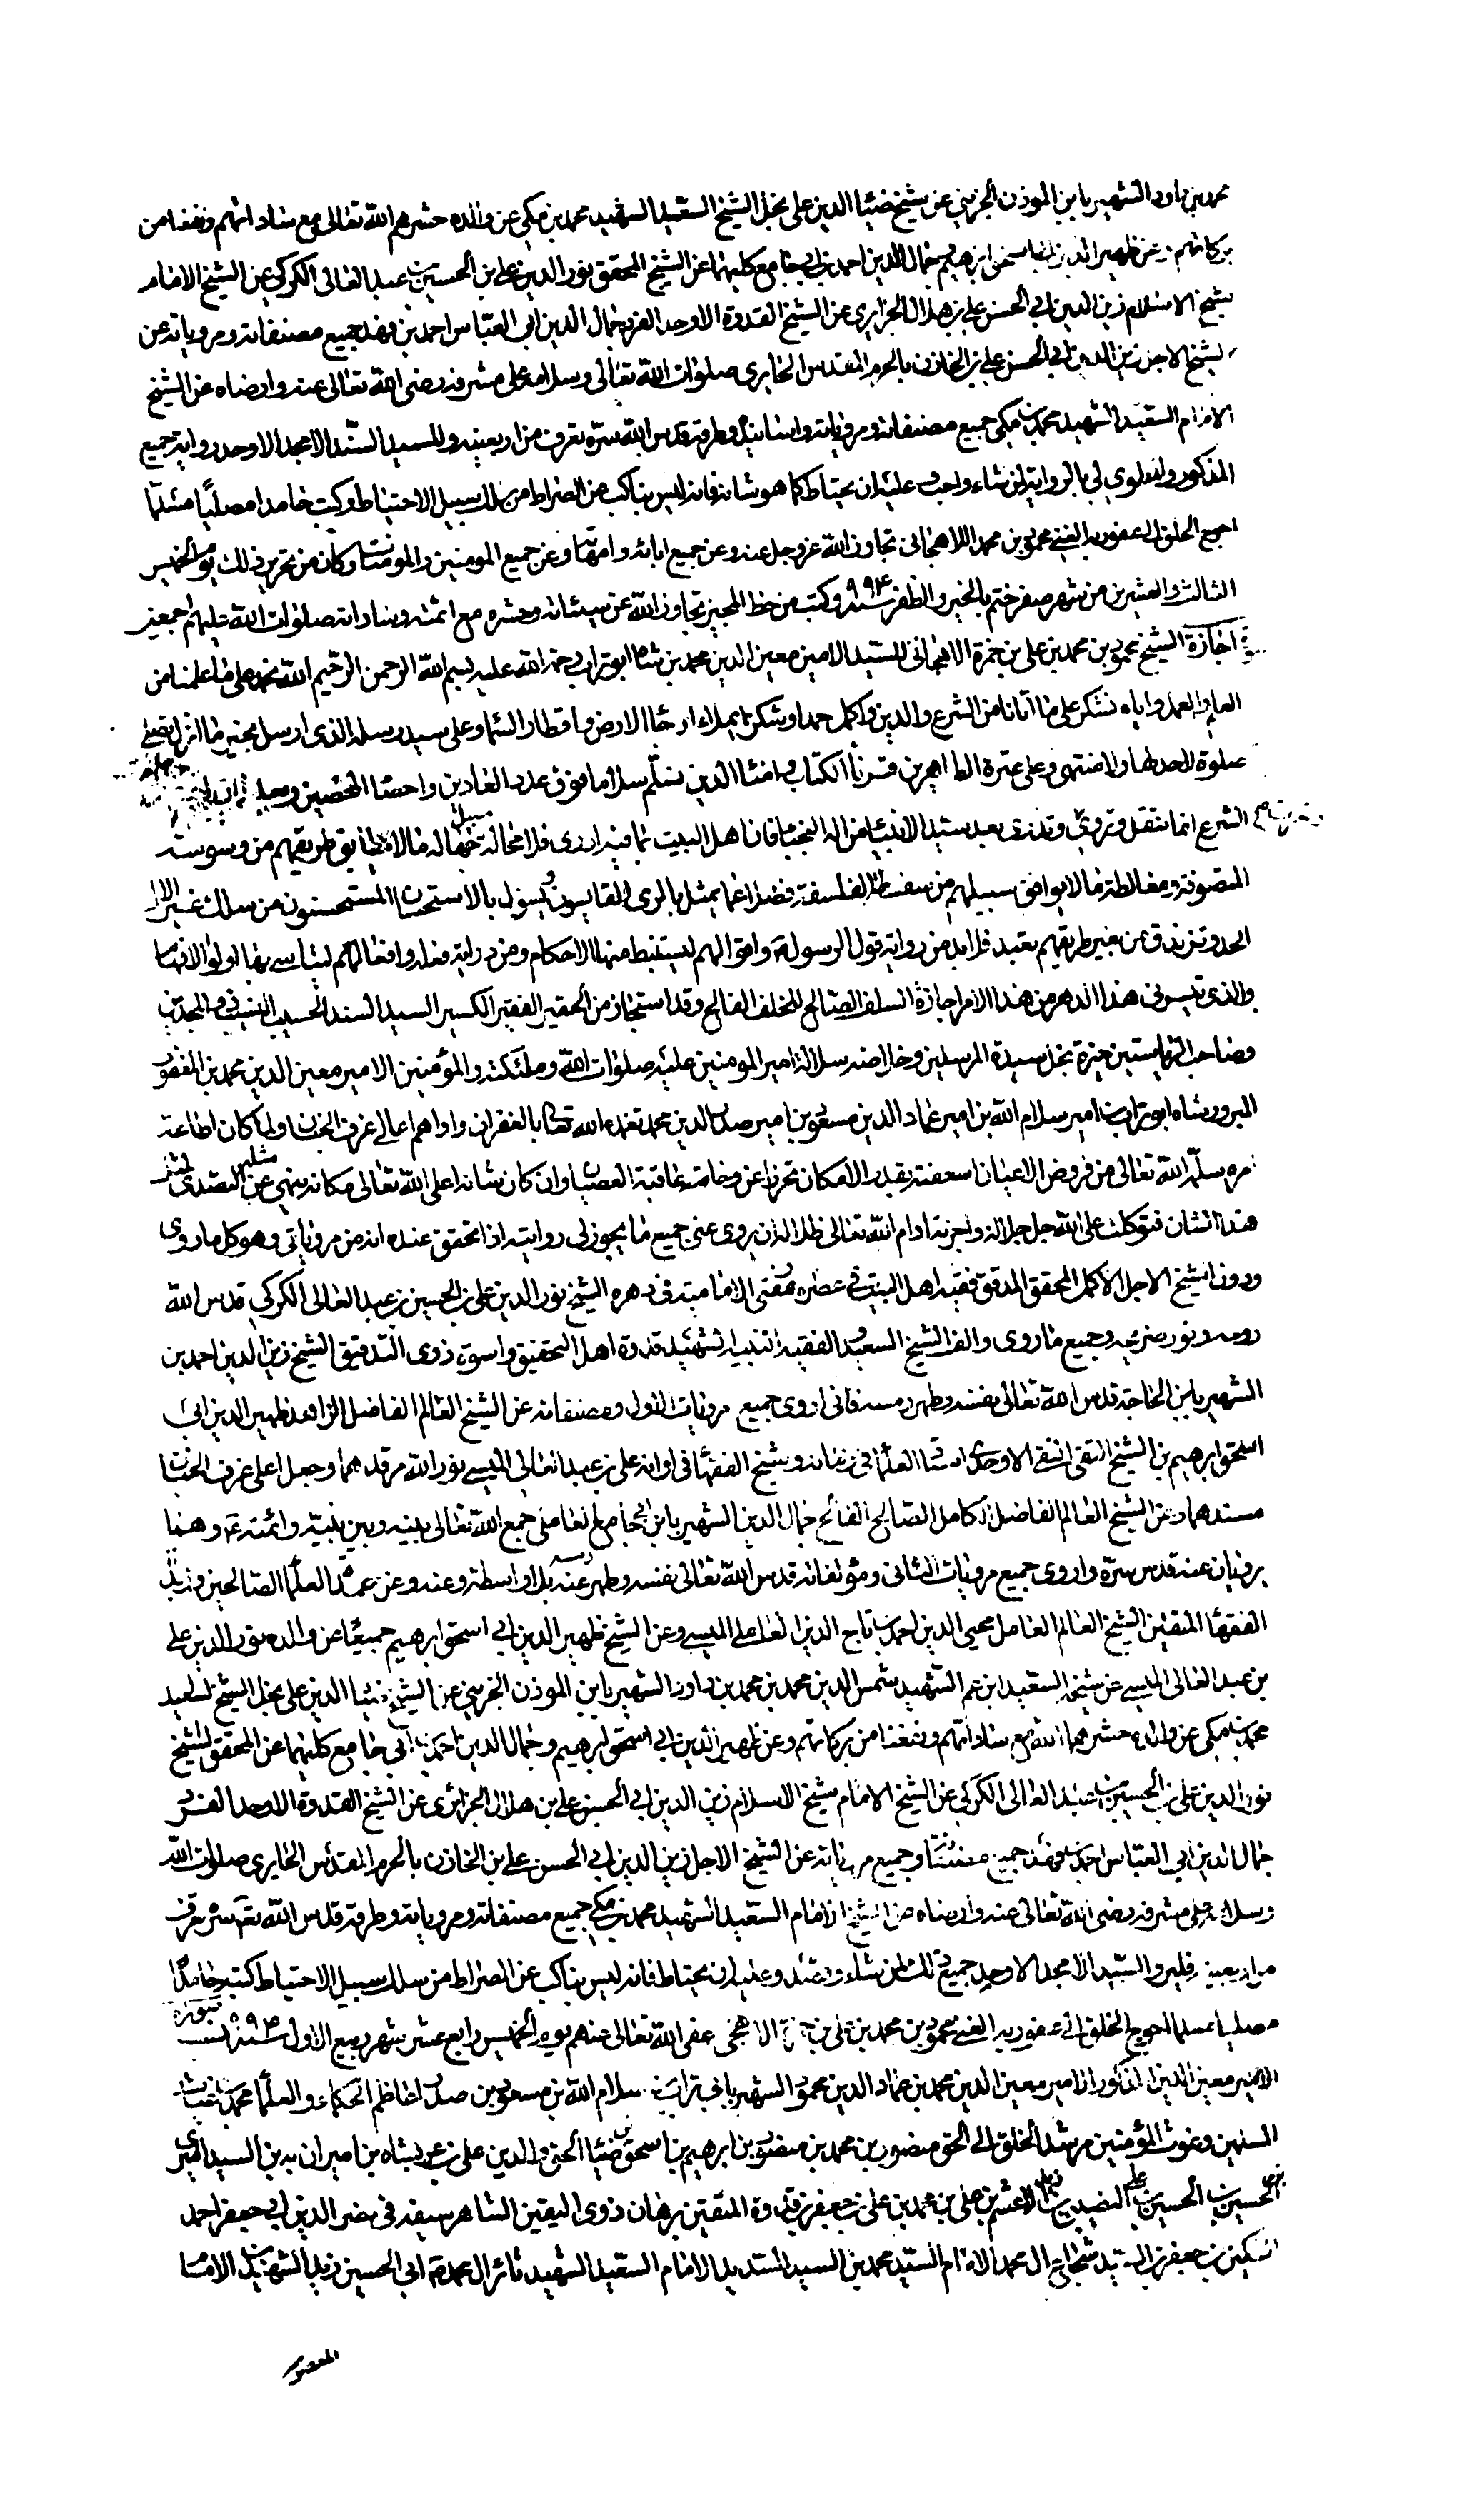 محمد بن داود الشهير بابن المؤذن الجزيني عن شيخه ضياء الدين علي نجل الشيخ السعيد الشهيد محمد بن مكي عن والده حشرهم الله تعالى مع ساداتهم ونفعنا من
بركاتهم وعن ظهير الدين ابي اسحق ابرهيم وجمال الدين احمد بن ابي جامع كليهما عن الشيخ المحقق نور الدين علي بن الحسين بن عبد العالى الكركي عن الشيخ الامام
شيخ الاسلام زين الدين ابي الحسن علي بن هلال الجزايري عن الشيخ القدوة الاوحد الفريد جمال الدين ابي العباس احمد بن فهد جميع مصنفاته ومروياته عن
الشيخ الاجل زين الدين ابي الحسن علي بن الخازن بالحرم المقدس الحايري صلوات الله تعالى وسلامه على مشرفه رضي الله تعالى عنه وارضاه عن الشيخ
الامام السعيد الشهيد محمد بن مكي جميع مصنفاته ومروياته واسانيده وطرقه قدس الله سره تعرف من اربعينه وللسيد السند الامجد الاوحد رواية جميع
المذكور والمدلوي لي بالرواية لمن شاء واحب وعليه ان يحتاط كما هو شانه فانه ليس بناكب عن الصراط من سلك سبيل الاحتياط وكتب حامدا مصليا مسلما
احوج الخلق الى عفو ربه الغني محمود بن محمد اللاهجاني تجاوز الله عز وجل عنه وعن جميع ابائه وامهاته وعن جميع المومنين والمومنات وكان من تحرير ذلك يوم الخميس
الثالث والعشرين من شهر صفر ختم بالخير والظفر سنه ٩٩٤ وكتب من خط المجيز تجاوز الله عن سيئاته وحشره مع ائمته وساداته صلوات الله عليهم اجمعين
اجازة الشيخ محمود بن محمد بن علي بن حمزة اللاهجاني للسيد الامين معين الدين محمد بن شاه ابوتراب رحمة الله عليه بسم الله الرحمن الرحيم الله نحمد على ما علمنا من
العلم والعمل واياه نشكر على ما اتانا من الشرع والدين واكمل حمدا وشكرا يملاء ارجاء الارض واقطار السماء وعلى سيد رسله الذى ارسل بخير ما انزل نصلي
صلوة لا حد لها ولا منتهى وعلى عترة الطاهرين قرناء الكتاب وامناء الدين نسلم سلاما فوق عدد العادين واحصاء المحصين وبعد
الشرع انما تنقل وتروى وتدرى بعد سيد الانبياء من اله النجباء فان اهل البيت بما فيه ادرى فلا محالة سبيل لما لا يطابق طريقهم من وسوسة
المتصوفة ومغالطة ما لا يوافق سبيلهم من سفسطة الفلسفة فضلا عما يمثل بالراى القايسون ويسول بالاستحسان المستحسنون من سلك غير
الحد وتزندق من بغير طريقهم تعبد فلا بد من رواية قول الرسول واقوالهم ليستنبط منها الاحكام ومن دراية فعله وافعالهم ليتاسى بها اولوا الافهام
والذى تيسر فى هذا الدهر من هذا الامر اجازة السلف الصالح للخلف الفالح وقد استجاز من الحقير الفقير الكسير السيد السند الحسيب النسيب ذو المجدين
وصاحب الرياستين عزة نجل سيدة المرسلين وخلاصة سلالة امير المومنين عليه صلوات الله وملئكته والمؤمنين الامير معين الدين محمد بن المغفور
المبرور شاه ابوتراب امير سلام الله بن امير عماد الدين مسعود بن امير صدر الدين محمد تغمده الله تعالى بالغفران واواهم اعالى غرف الجنان ولما كان اطاعة
امره سلمه الله تعالى من فروض الاعيان اسعفته بقدر الامكان تحرزا عن وخامة عاقبة العصيان وان كان شانه اعلى الله تعالى مكانه ينهى عن التصدى لمثل
هذا الشان فتوكلت على الله جل جلاله واجزته ادام الله تعالى ظلاله ان يروى عني جميع ما يجوز لي روايته اذا تحقق عنده انه من مروياتي وهو كل ما روى
ودون الشيخ الاجل الاكمل المحقق المدقق فقيه اهل البيت في عصره ومفتى الامامية في دهره الشيخ نور الدين علي بن الحسين بن عبد العالى الكركي قدس الله
روحه ونور ضريحه وجميع ما روى والف الشيخ السعيد الفقيه النبيه الشهيد قدوة اهل التحقيق واسوة ذوى التدقيق الشيخ زين الدين احمد بن
الشهير بابن الحاجة قدس الله تعالى نفسه وطهر رمسه فانى اروى جميع مرويات الاول ومصنفاته عن الشيخ العالم الفاضل الزاهد ظهير الدين ابي
اسحق ابرهيم بن الشيخ التقى النقى الاوحدى استاد العلماء في زمانه وشيخ الفقهاء فى اوانه علي بن عبد العالى الميسي نور الله مرقدهما وجعل اعلى غرف الجنان
مسندهما وعن الشيخ العالم الفاضل الكامل الصالح الفالح جمال الدين الشهير بابن ابي جامع العاملى جمع الله تعالى بينه وبين نبيه وائمته وهما
يرويان عنه قدس سره واروى جميع مرويات الثانى ومؤلفاته قدس الله تعالى نفسه وطهر رمسه عنه بلا واسطة وعنه وعن عمدة العلماء الصالحين وزبدة
الفقهاء المتقين الشيخ العالم العامل محيي الدين احمد بن تاج الدين العاملي الميسي وعن الشيخ ظهير الدين ابي اسحق ابرهيم جميعا عن والده نور الدين علي
بن عبد العالى الميسي عن شيخه السعيد ابن عم الشهيد شمس الدين محمد بن محمد بن داود الشهير بابن المؤذن الجزيني عن الشيخ ضياء الدين علي نجل الشيخ السعيد
محمد بن مكي عن والده حشرهما الله مع ساداتهم ونفعنا من بركاتهم وعن ظهير الدين ابي اسحق ابرهيم وجمال الدين احمد بن ابي جامع كليهما عن المحقق الشيخ
نور الدين علي بن الحسين بن عبد العالى الكركي عن الشيخ الامام شيخ الاسلام زين الدين ابي الحسن علي بن هلال الجزائرى عن الشيخ القدوة الاوحد الفريد
جمال الدين ابي العباس احمد بن فهد جميع مصنفاته وجميع مروياته عن الشيخ الاجل زين الدين ابي الحسن علي بن الخازن بالحرم المقدس الحايري صلوات الله
وسلامه على مشرفه رضى الله تعالى عنه وارضاه عن الشيخ الامام السعيد الشهيد محمد بن مكي جميع مصنفاته ومروياته وطرقه قدس الله سره تعرف
من اربعينه فليرو السيد الامجد الاوحد جميع ذلك لمن شاء وعليه ان يحتاط فانه ليس بناكب عن الصراط من سلك سبيل الاحتياط كتبه حامدا
مصليا مسلما احوج الخلق الى عفو ربه الغني محمود بن محمد بن علي بن حمزة اللاهجى عفى الله تعالى عنهم يوم الخميس رابع عشر شهر ربيع الاول سنة ٩٩٤
الامير معين الدين المذكور الامير معين الدين محمد بن عماد الدين محمود الشهير بابي تراب سلام الله بن مسعود بن صدر اعاظم الحكماء والعلماء محمد
المسلمين وغوث المؤمنين مرشد الخلق الى الحق منصور بن محمد بن منصور بن ابرهيم بن اسحق ضياء الحق والدين علي بن عربشاه بن اميران به بن السيد اميرى
الحسين بن الحسين علي النصيبين الاعشم بن علي بن محمد بن علي بن جعفر قدوة المتقين برهان ذوى اليقين الشاهر سيفه في نصر الدين ابي جعفر احمد
السكين بن جعفر بن السيد شجاع ال محمد الامام السيد محمد بن السيد السديد الامام السعيد الشهيد ثائر ال محمد ابي الحسين زيد الشهيد بن الامام
المعصوم